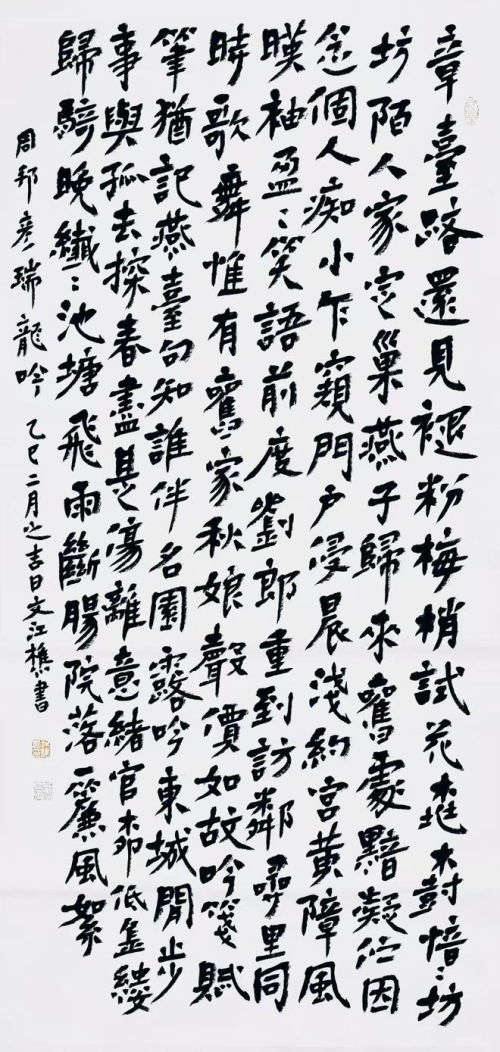 章臺路還見褪粉梅梢試花桃樹愔〻坊
坊陌人家定巢燕子歸來舊處黯凝佇因
念個人痴小乍窺門戶侵晨淺約宮黃障風
暎袖盈〻笑語前度劉郎重到訪鄰尋里同
時歌舞惟有舊家秋娘聲價如故吟箋賦
筆猶記燕臺句知誰伴名園露吟東城閒步
事與孤去探春盡是傷離意緒官柳低金縷
歸騎晚纖〻池塘飛雨斷腸院落一簾風絮
周邦彥瑞龍吟 乙巳二月之吉日文江樵書